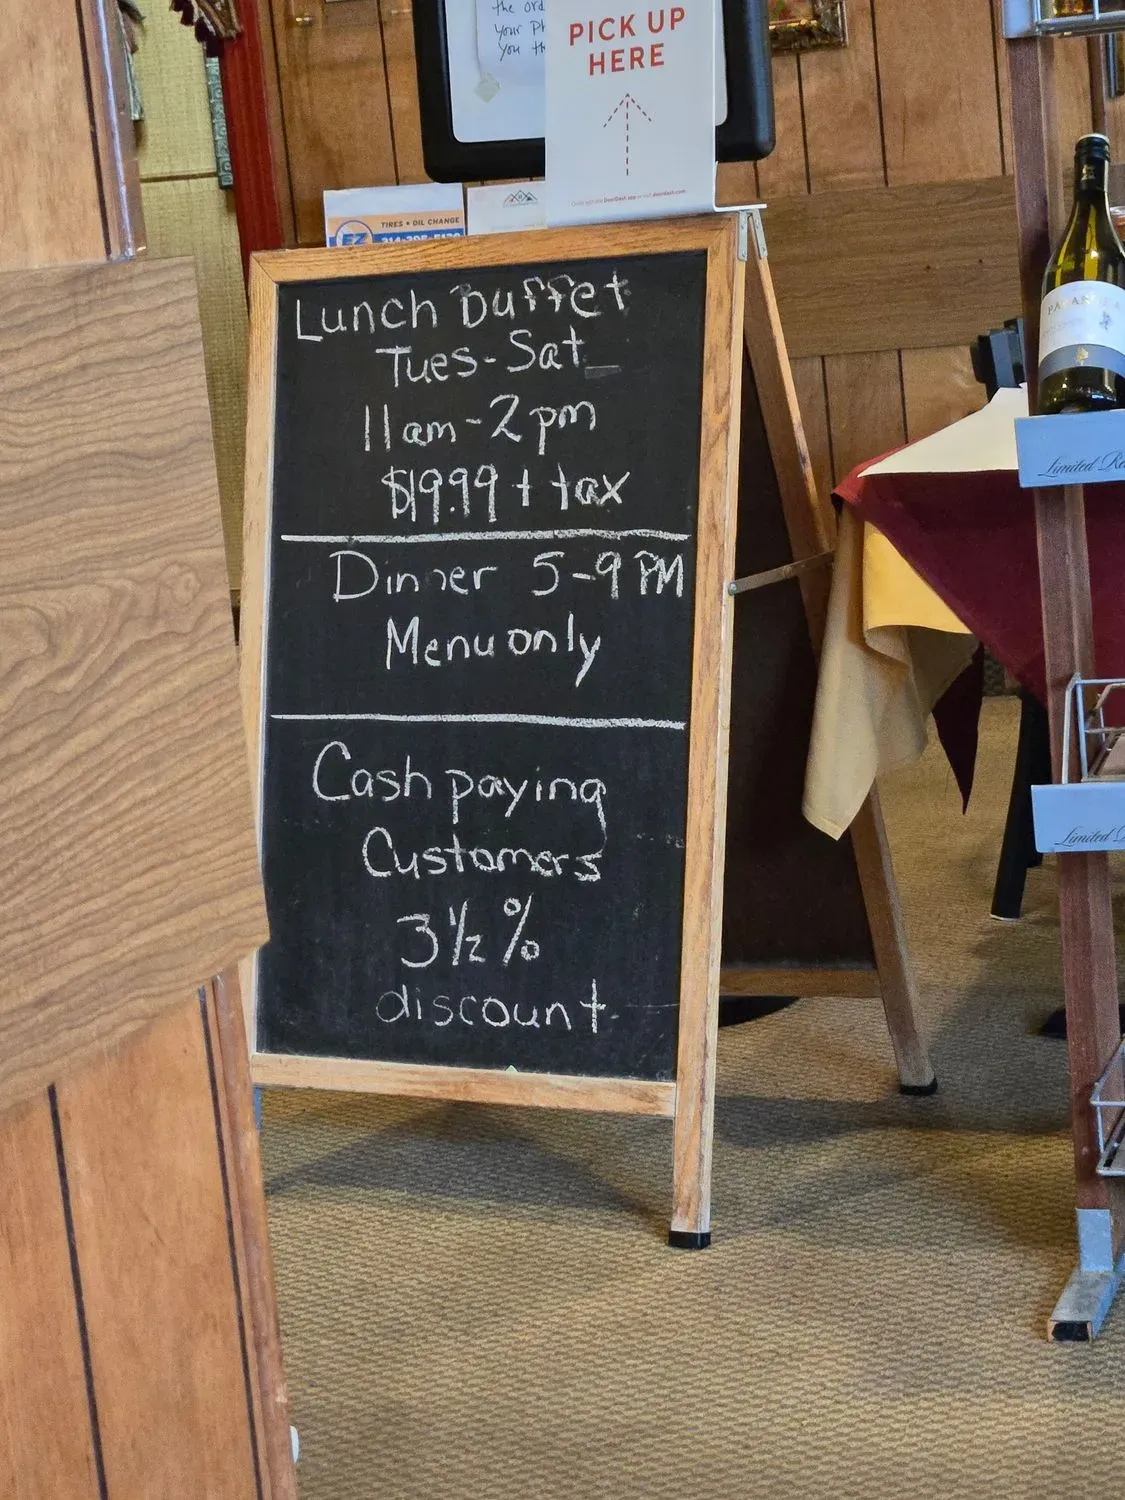 the ord
your Ph
you th
PICK UP
HERE
TIRES • OIL CHANGE
EZ
Lunch Buffet
Tues-Sat
11am-2pm
$19.99 + tax
Dinner 5-9 PM
Menu only
Cash paying
Customers
3 1/2 %
discount
Limited Re
Limited